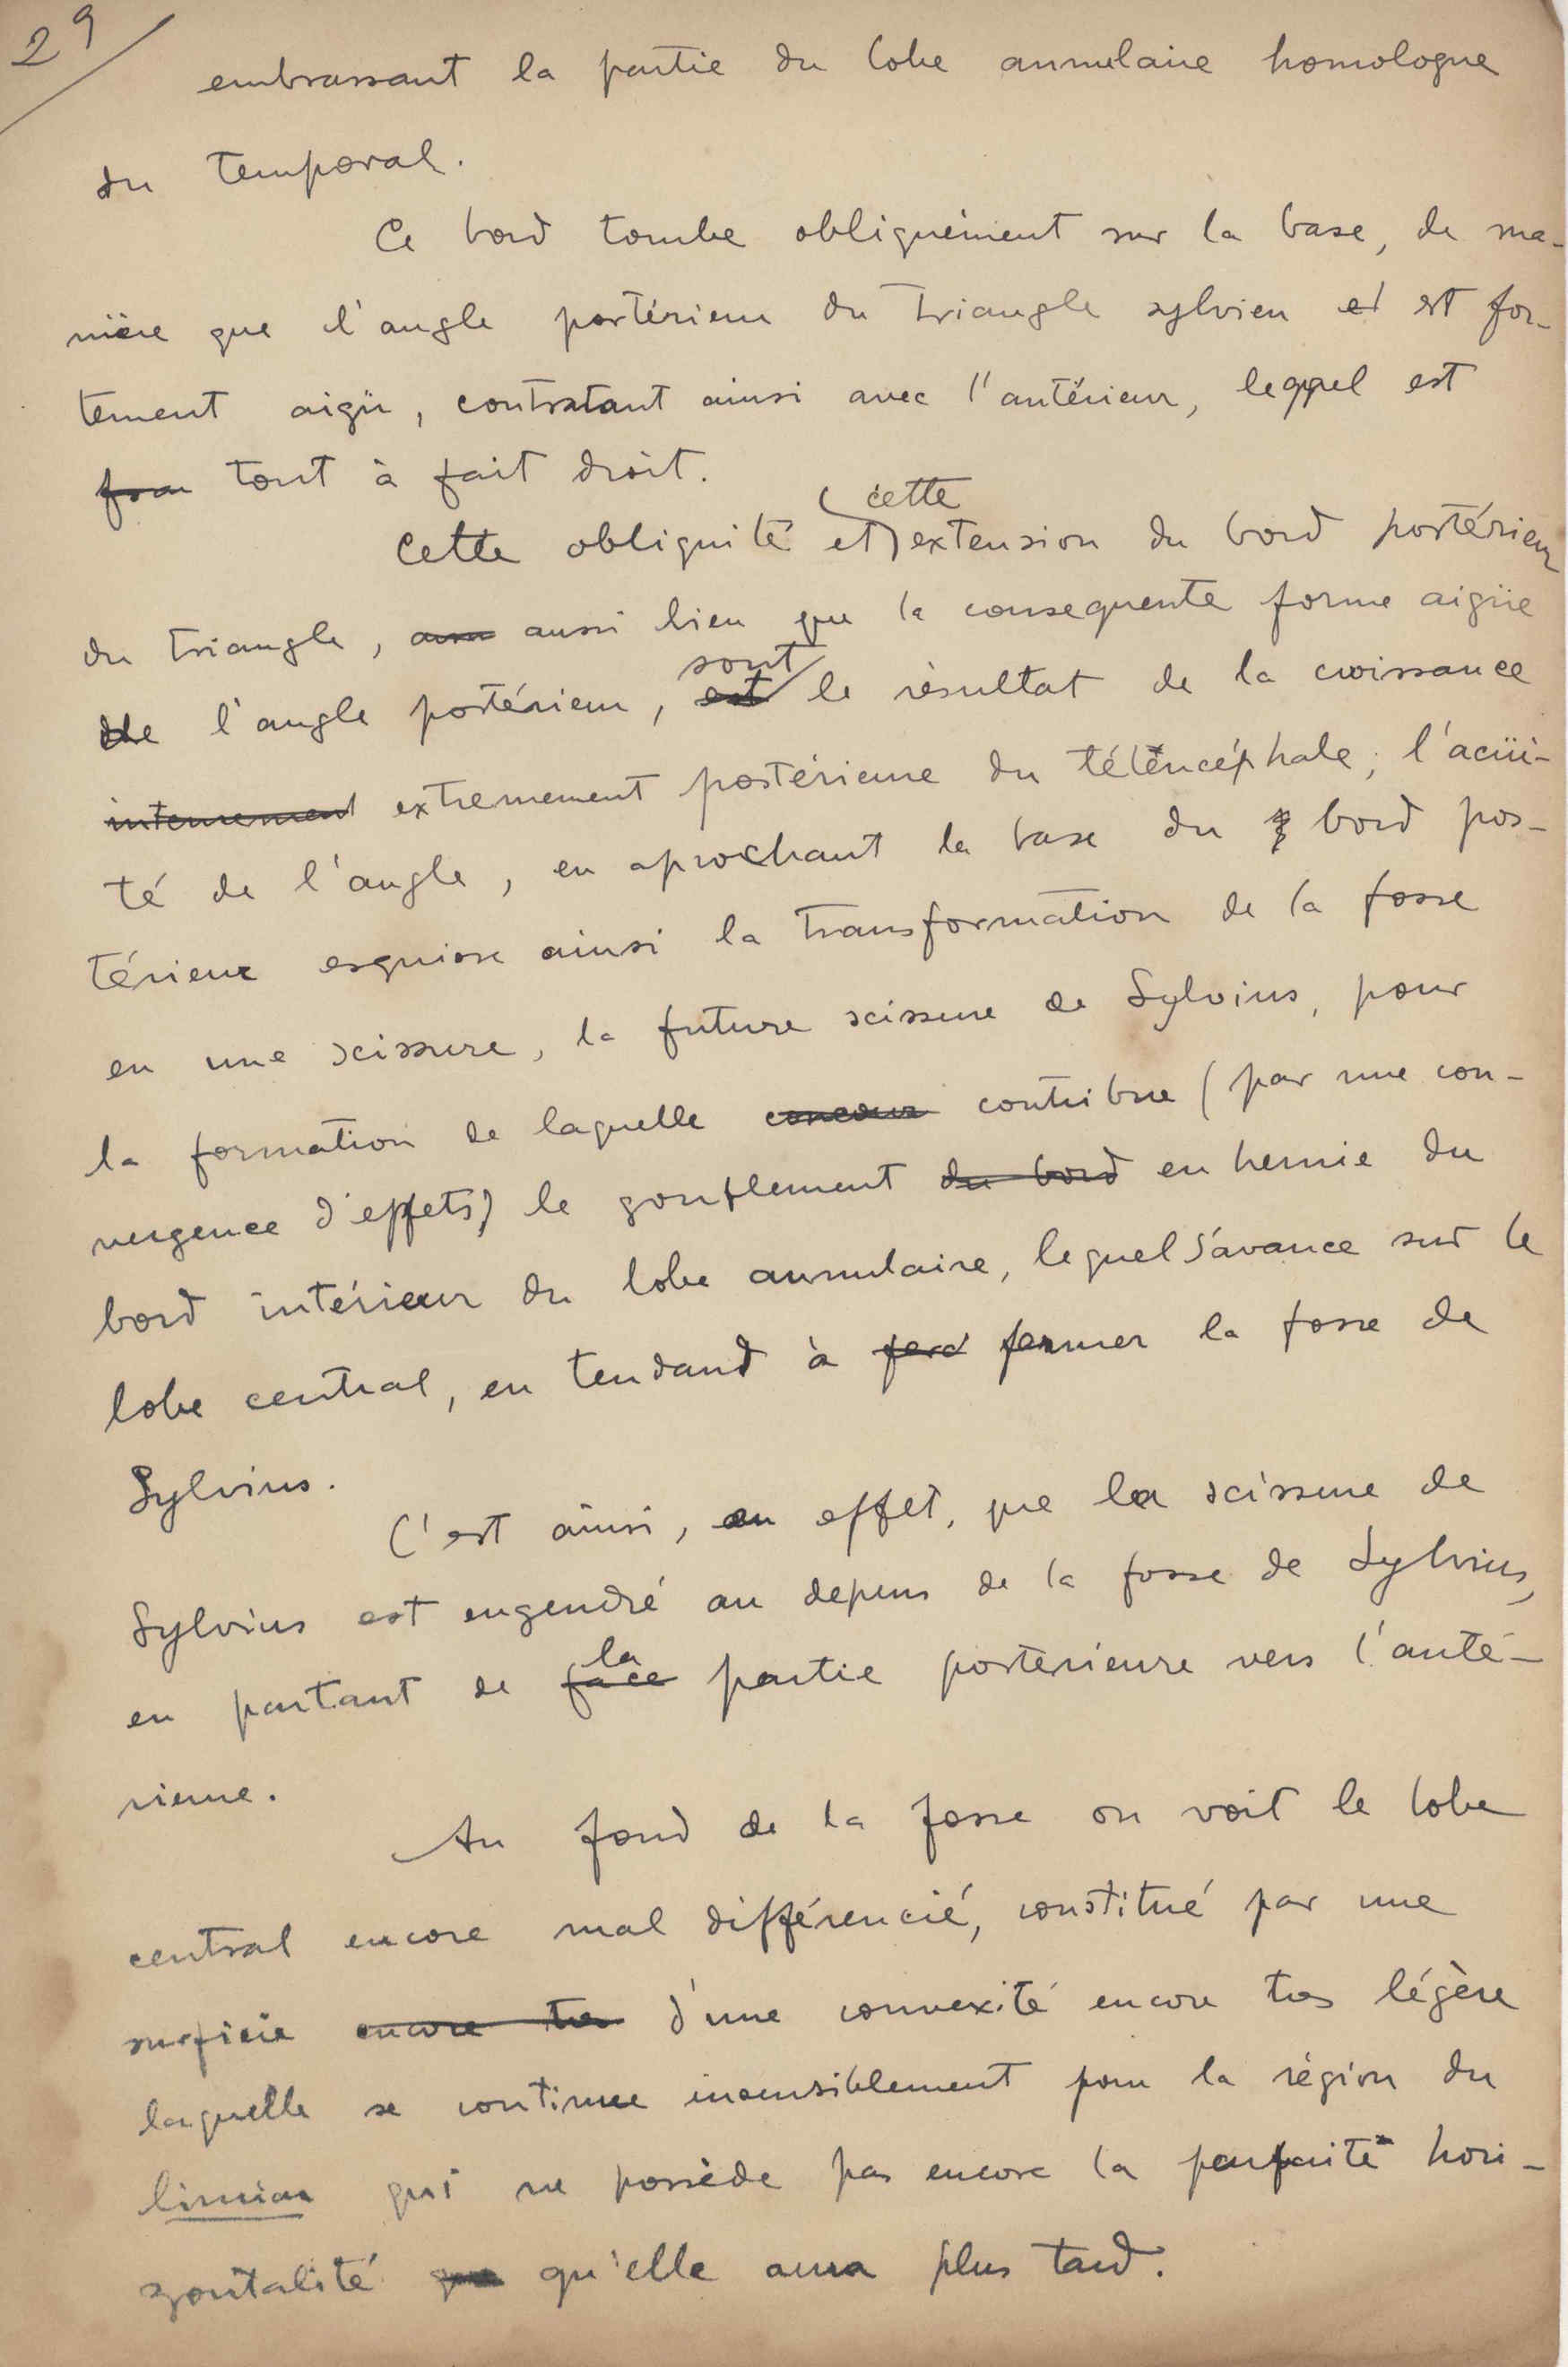 29
embrassant la partie du lobe annulaire homologue
du temporal.
Ce bord tombe obliquément sur la base, de ma-
nière que l'angle postérieur du triangle sylvien et est for-
tement aigü, contrastant ainsi avec l'antérieur, leqquel est
tout à fait droit.
cette
Cette obliquité et extension du bord postérieur
du triangle, aussi bien que la consequente forme aigüe
sont
de l'angle postérieur, est le résultat de la croissance
intensement extremement postérieure du télencéphale; l'acüi-
té de l'angle, en aprochant la base du bord pos-
térieur esquisse ainsi la transformation de la fosse
en une scissure, la future scissure de Sylvius, pour
la formation de laquelle contribue (par une con-
vergence d'effets) le gonflement du bord en hernie du
bord intérieur du lobe annulaire, lequel s'avance sur le
lobe central, en tendand à fermer la fosse de
Sylvius.
C'est ainsi, en effet, que la scissure de
Sylvius est engendré au depens de la fosse de Sylvius,
la
en partant de face partie posterieure vers l'anté-
rieure.
Au fond de la fosse on voit le lobe
central encore mal différencié, constitué par une
surficie encore tres d'une convexité encore tres légère
laquelle se continue insensiblement pour la région du
limian qui ne possède pas encore la parfaite hori-
zontalité que qu'elle aura plus tard.